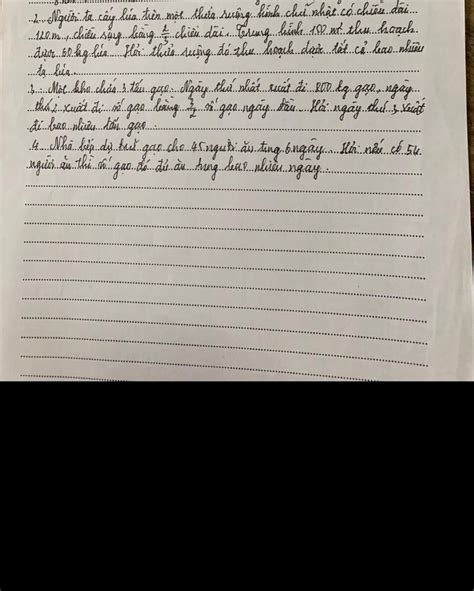 2. Người ta cấy lúa trên một thửa ruộng hình chữ nhật có chiều dài
120m, chiều rộng bằng chiều dài. Trung bình 100 m² thu hoạch
được 60 kg lúa. Hỏi thửa ruộng đó thu hoạch được tất cả bao nhiêu
tạ lúa.
3. Một kho chứa 3 tấn gạo. Ngày thứ nhất xuất đi 800 kg gạo, ngày
thứ 2 xuất đi số gạo bằng số gạo ngày đầu. Hỏi ngày thứ 3 xuất
đi bao nhiêu tấn gạo.
4. Nhà bếp dự trữ gạo cho 45 người ăn trong 6 ngày. Hỏi nếu có 54
người ăn thì số gạo đó đủ ăn trong bao nhiêu ngày.